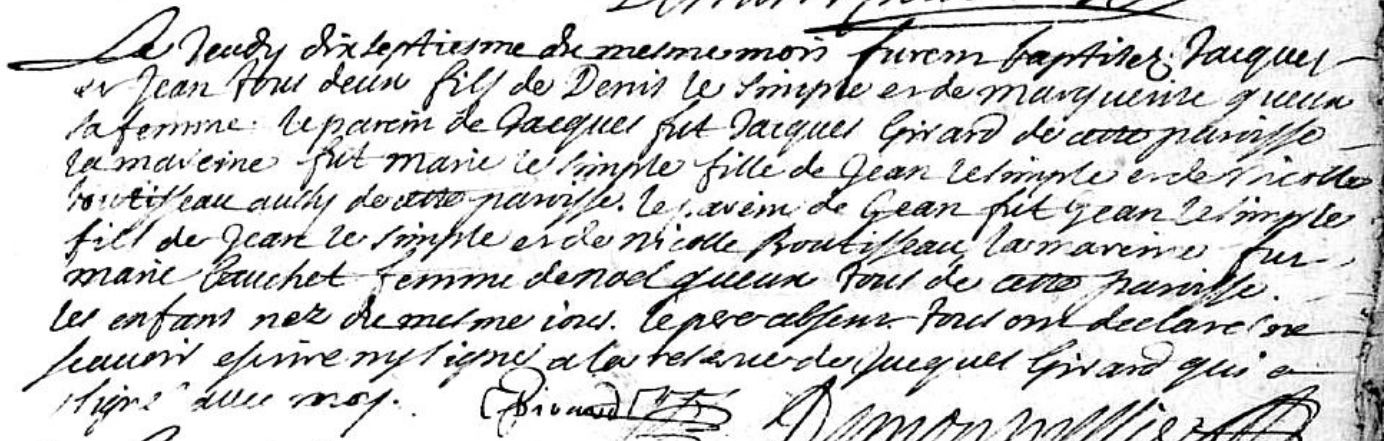 Le Jeudy dixseptiesme du mesme mois furent baptisez Jacques
et Jean tous deux fils de Denis le simple et de marguerite queux
sa femme. le parein de Jacques fut Jacques Girard de cette paroisse
la mareine fut marie le simple fille de Jean le simple et de Nicolle
boutisseau aussy de cette paroisse. le parein de Gean fut gean le simple
fils de Jean le simple et de nicolle Boutisseau, la mareine fut
marie Cauchet femme de noel queux tous de cette paroisse.
les enfans nez du mesme iour. le pere absent. tous ont declare ne
scavoir escrire ny signer a la reserve de Jacques Girard qui a
signé avec moy. Girard